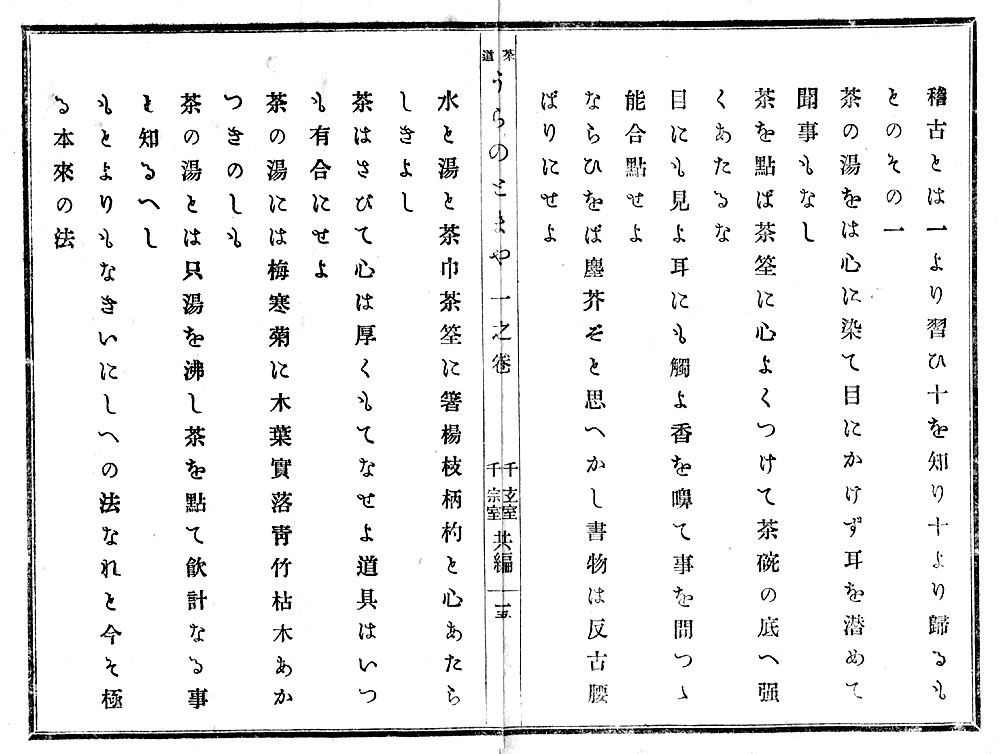 稽古とは一より習ひ十を知り十より歸るも
とのその一
茶の湯をは心に染て目にかけず耳を潜めて
聞事もなし
茶を點ば茶筌に心よくつけて茶碗の底へ强
くあたるな
目にも見よ耳にも觸よ香を嗅て事を問つゝ
能合點せよ
ならひをば塵芥ぞと思へかし書物は反古腰
ばりにせよ
茶道
うらのとまや一之卷
千玄室
千宗室
共編
一五
水と湯と茶巾茶筌に箸楊枝柄杓と心あたら
しきよし
茶はさびて心は厚くもてなせよ道具はいつ
も有合にせよ
茶の湯には梅寒菊に木葉實落靑竹枯木あか
つきのしも
茶の湯とは只湯を沸し茶を點て飮計なる事
と知るへし
もとよりもなきいにしへの法なれと今そ極
る本來の法